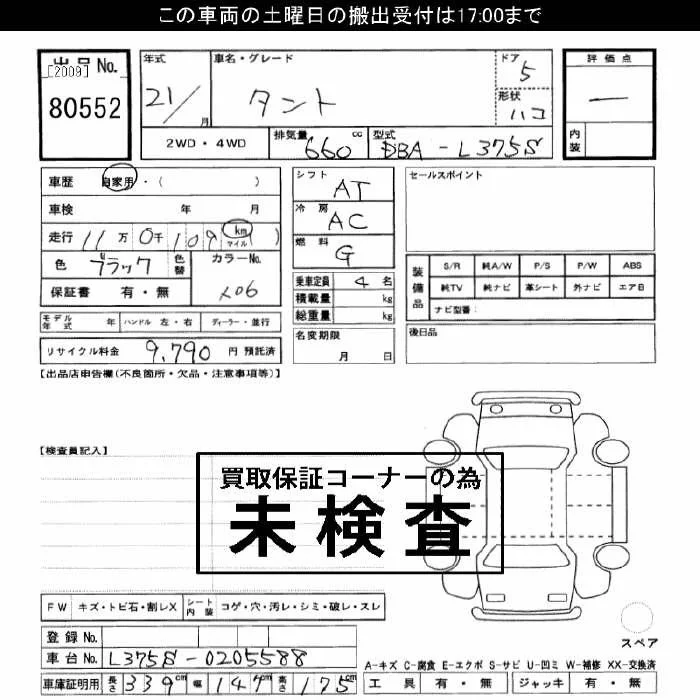 この車両の土曜日の搬出受付は17:00まで
出品No. [2009] 80552
年式 21/ 月
車名・グレード タント
ドア 5
形状 ハコ
評価点 ー
内装
2WD・4WD
排気量 660 cc
型式 DBA-L375S
車歴 自家用・( )
車検 年 月
走行 11万0千109 km マイル ( )
色 ブラック 色替
カラーNo. X06
保証書 有・無
シフト AT
冷房 AC
燃料 G
乗車定員 4 名
積載量 kg
総重量 kg
名変期限 月 日
セールスポイント
装備品 S/R 純A/W P/S P/W ABS
純TV 純ナビ 革シート 外ナビ エアB
ナビ型番:
後日品
モデル年式 年 ハンドル 左・右 ディーラー・並行
リサイクル料金 9,790 円 預託済
【出品店申告欄(不良箇所・欠品・注意事項等)】
【検査員記入】
買取保証コーナーの為
未検査
FW キズ・トビ石・割レX シート内装 コゲ・穴・汚レ・シミ・破レ・スレ
登録No.
車台No. L375S-0205588
車庫証明用 長さ 339cm 幅 147cm 高さ 175cm
スペア
A-キズ C-腐食 E-エクボ S-サビ U-凹ミ W-補修 XX-交換済
工具 有・無 ジャッキ 有・無